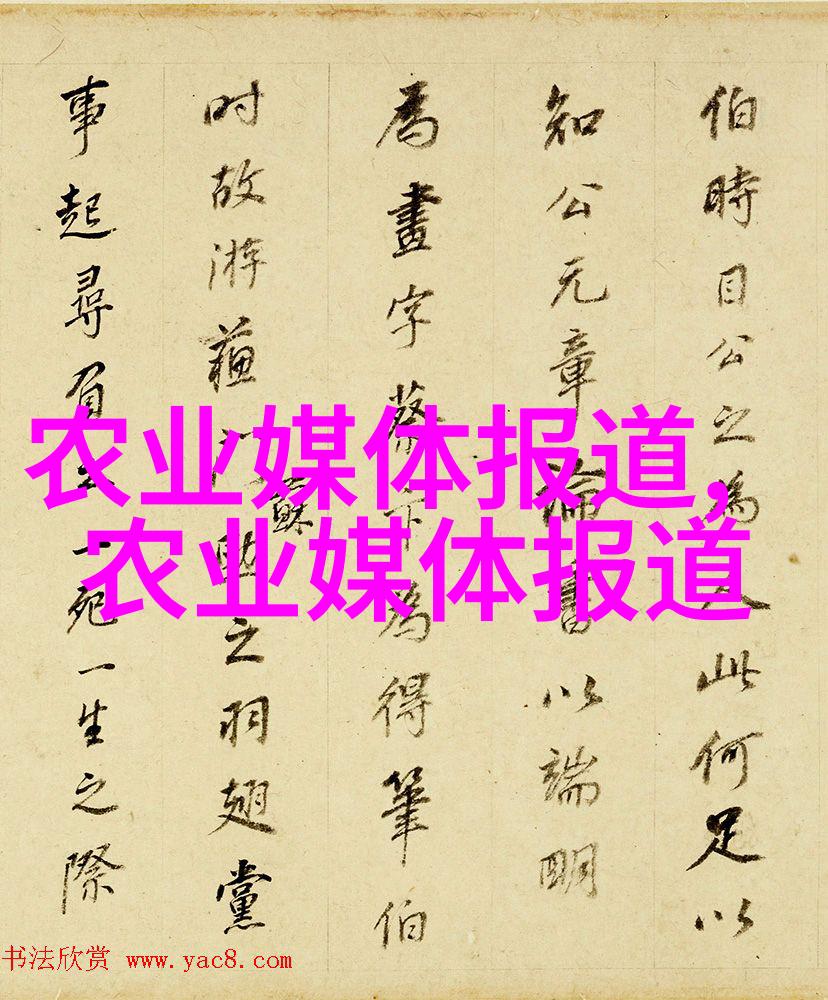 伯時目公之為人此何足以
知公元章論書以端明
為畫字蔡卞為得筆伯
時故游蘓門蘇助之羽翅黨
事起尋眉一死一生之際
农业媒体报道,
农业媒体报道
书法欣赏 www.yac8.com